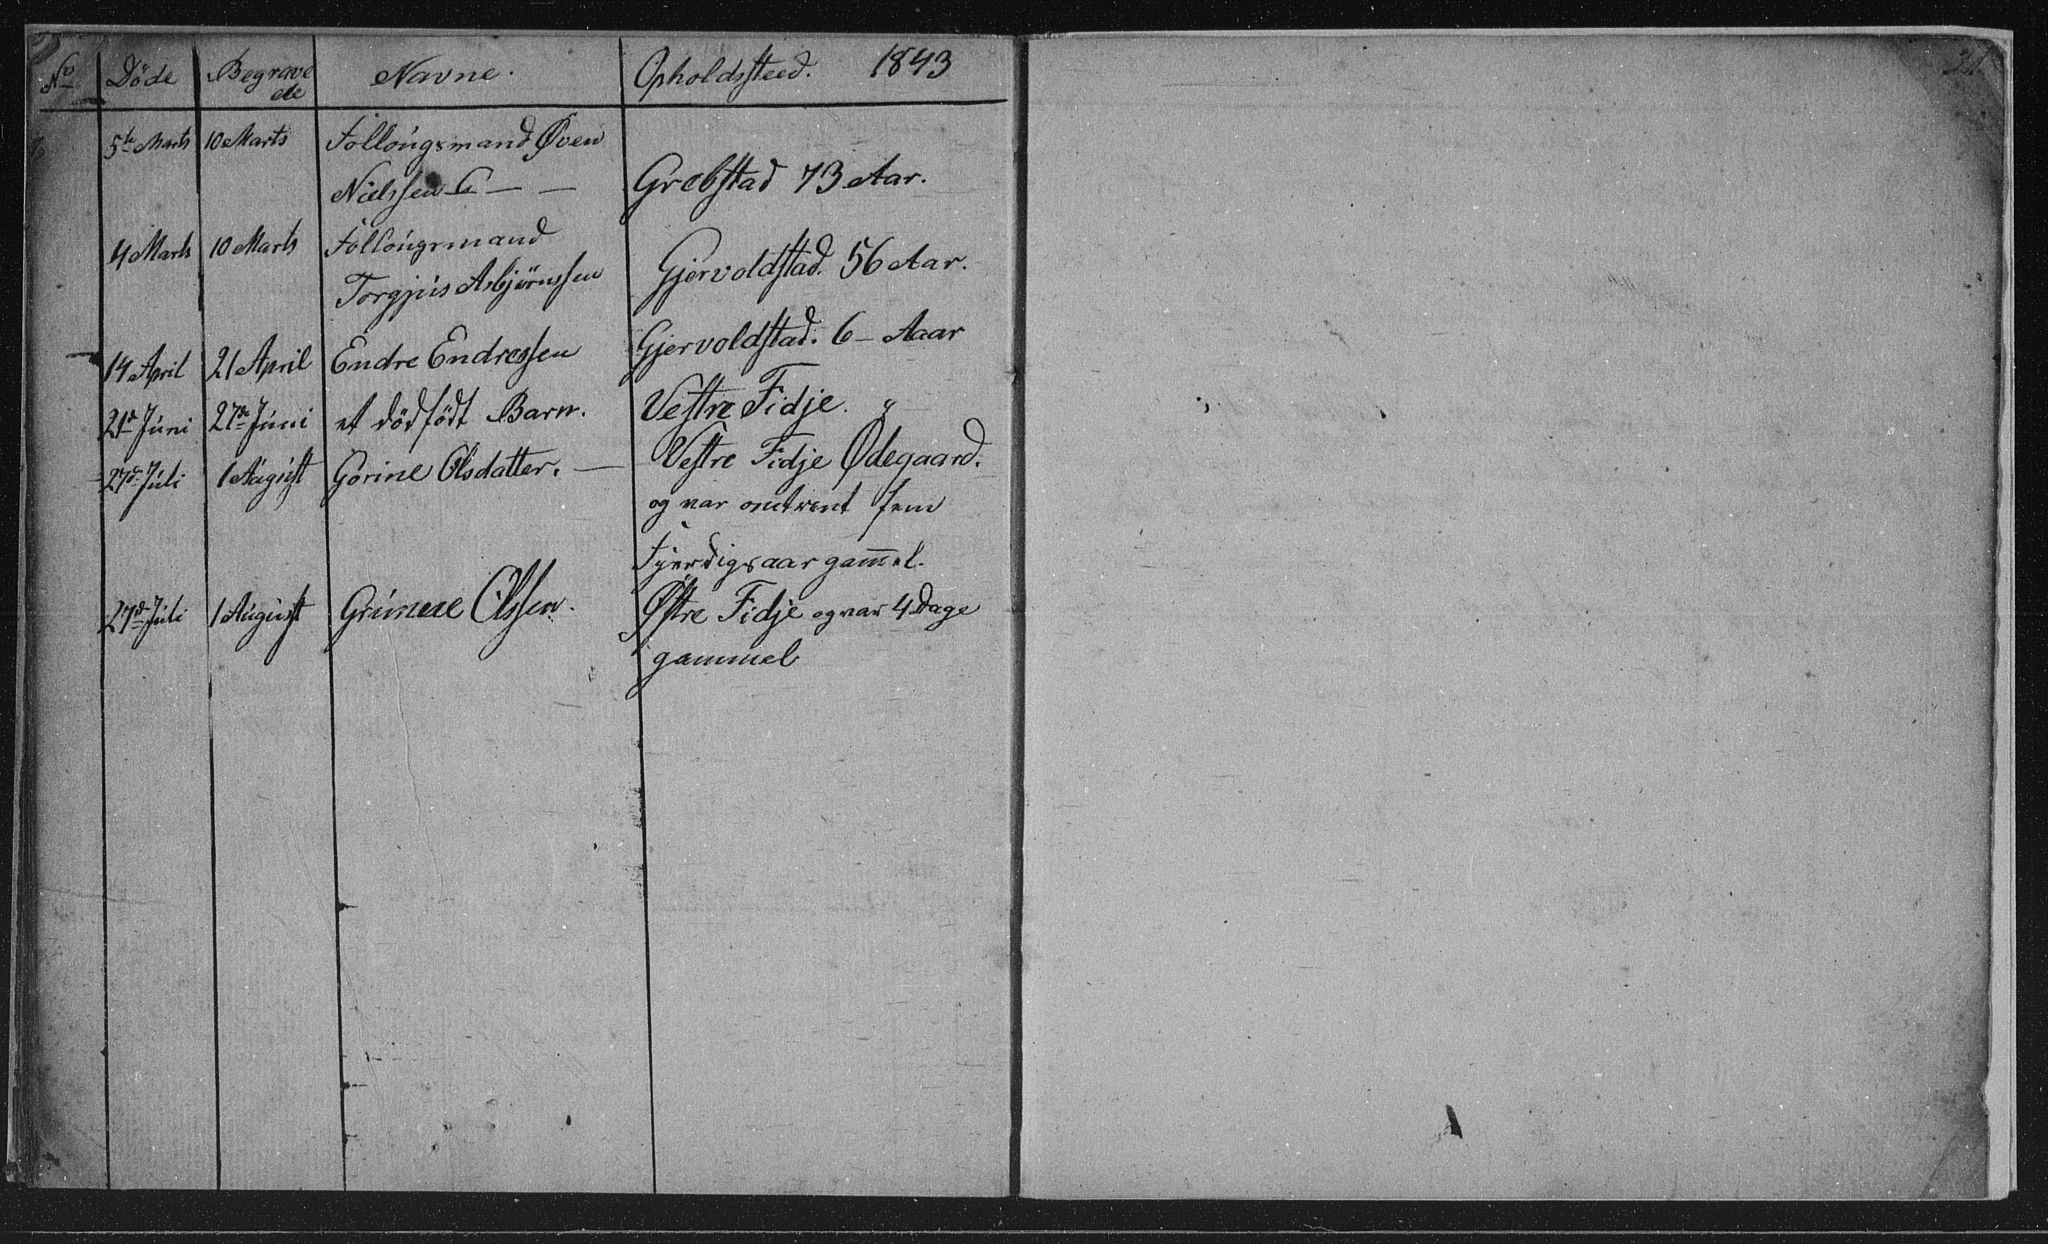 No Døde Begrave Navne. Opholdssteed. 1843
de
5te Marts 10 Marts Follougsmand Øven
Nielssen — — Grebstad 73 Aar.
4 Marts 10 Marts Follougsmand
Torgjus Asbjørnssen Gjervoldstad. 56 Aar.
14 April 21 April Endre Endressen Gjervoldstad. 6 – Aaar
21de Juni 27de Juni et dödfödt Barn. Vestre Fidje. "
27de Juli 1 August Gorine Olsdatter. — Vestre Fidje Ødegaard.
og var omtrent fem
Fjerdigsaar gam̅el.
27de Juli 1 August Olssen. Østre Fidje og var 4 Dage
gammel
21.